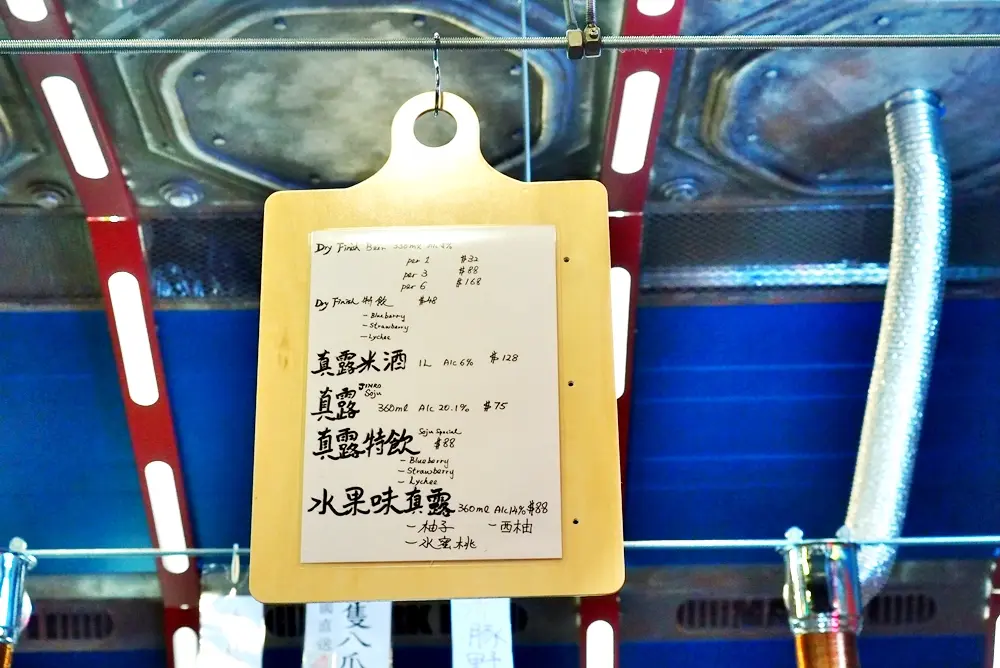 Dry Finish Beer 330ml Alc 4%
per 1 $32
per 3 $88
per 6 $168
Dry Finish 特飲 $48
- Blueberry
- Strawberry
- Lychee
真露米酒 1L Alc 6% $128
真露 JINRO Soju 360ml Alc 20.1% $75
真露特飲 Soju Special $88
- Blueberry
- Strawberry
- Lychee
水果味真露 360ml Alc14% $88
- 柚子 - 西柚
- 水蜜桃
直送
隻八爪
豚野